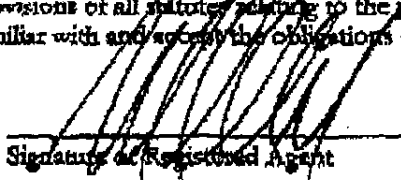 ovisions of all statutes relating to the
miliar with and accept the obligations
Signature of Registered Agent